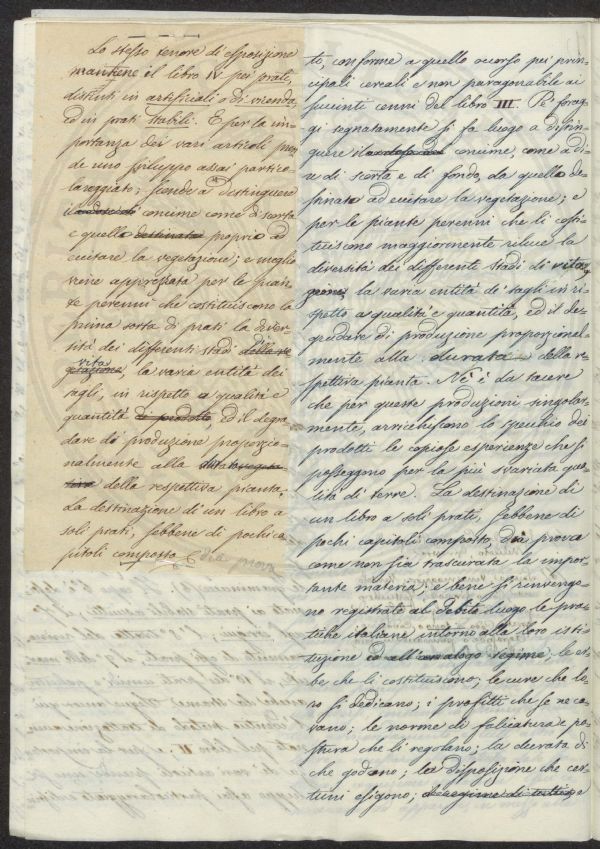 Lo stesso tenore di esposizione
mantiene il libro IV pei prati,
distinti in artificiali o di vicenda,
ed in prati stabili. E per la im-
portanza dei vari articoli pren-
de uno sviluppo assai partico-
lareggiato; scende a distinguere
il concime come di scorta
e quello destinato proprio ad
eccitare la vegetazione; e meglio
viene apprezzata per le pian-
te perenni che costituiscono la
prima sorta di prati la diver-
sità dei differenti stadi della ve
vita
getazione, la varia entità dei
tagli, in rispetto a qualità e
quantità di prodotto ed il degra-
dare di produzione proporzio-
nalmente alla
della respettiva pianta.
La destinazione di un libro a
soli prati, sebbene di pochi ca-
pitoli composto dia prova
to, conforme a quello occorso pei prin-
cipali cereali e non paragonabile ai
succinti cenni del libro III. Pe' forag-
gi segnatamente si fa luogo a distin-
guere il concime, come a di-
re di scorta e di fondo, da quello de-
stinato ad eccitare la vegetazione; e
per le piante perenni che li costi-
tuiscono maggiormente riluce la
diversità dei differenti stadi di vita
la varia entità de' tagli in ri-
spetto a qualità e quantità, ed il de-
gradare di produzione proporzional-
mente alla durata della re-
spettiva pianta. Nè è da tacere
che per queste produzioni singolar-
mente, arricchiscono lo specchio dei
prodotti le copiose esperienze che si
posseggono per la più svariata qua-
lità di terre. La destinazione di
un libro a soli prati, sebbene di
pochi capitoli composto, dia prova
come non sia trascurata la impor-
tante materia: e bene si rinvengo-
no registrate al debito luogo le pra-
tiche italiane intorno alla loro isti-
tuzione ed all'analogo regime; le er-
be che li costituiscono; le cure che lo-
ro si dedicano; i profitti che se ne ca-
vano; le norme di falciatura e pa-
stura che li regolano; la durata di
che godono; le disposizione che cer-
tuni esigono; il regime di tutti e